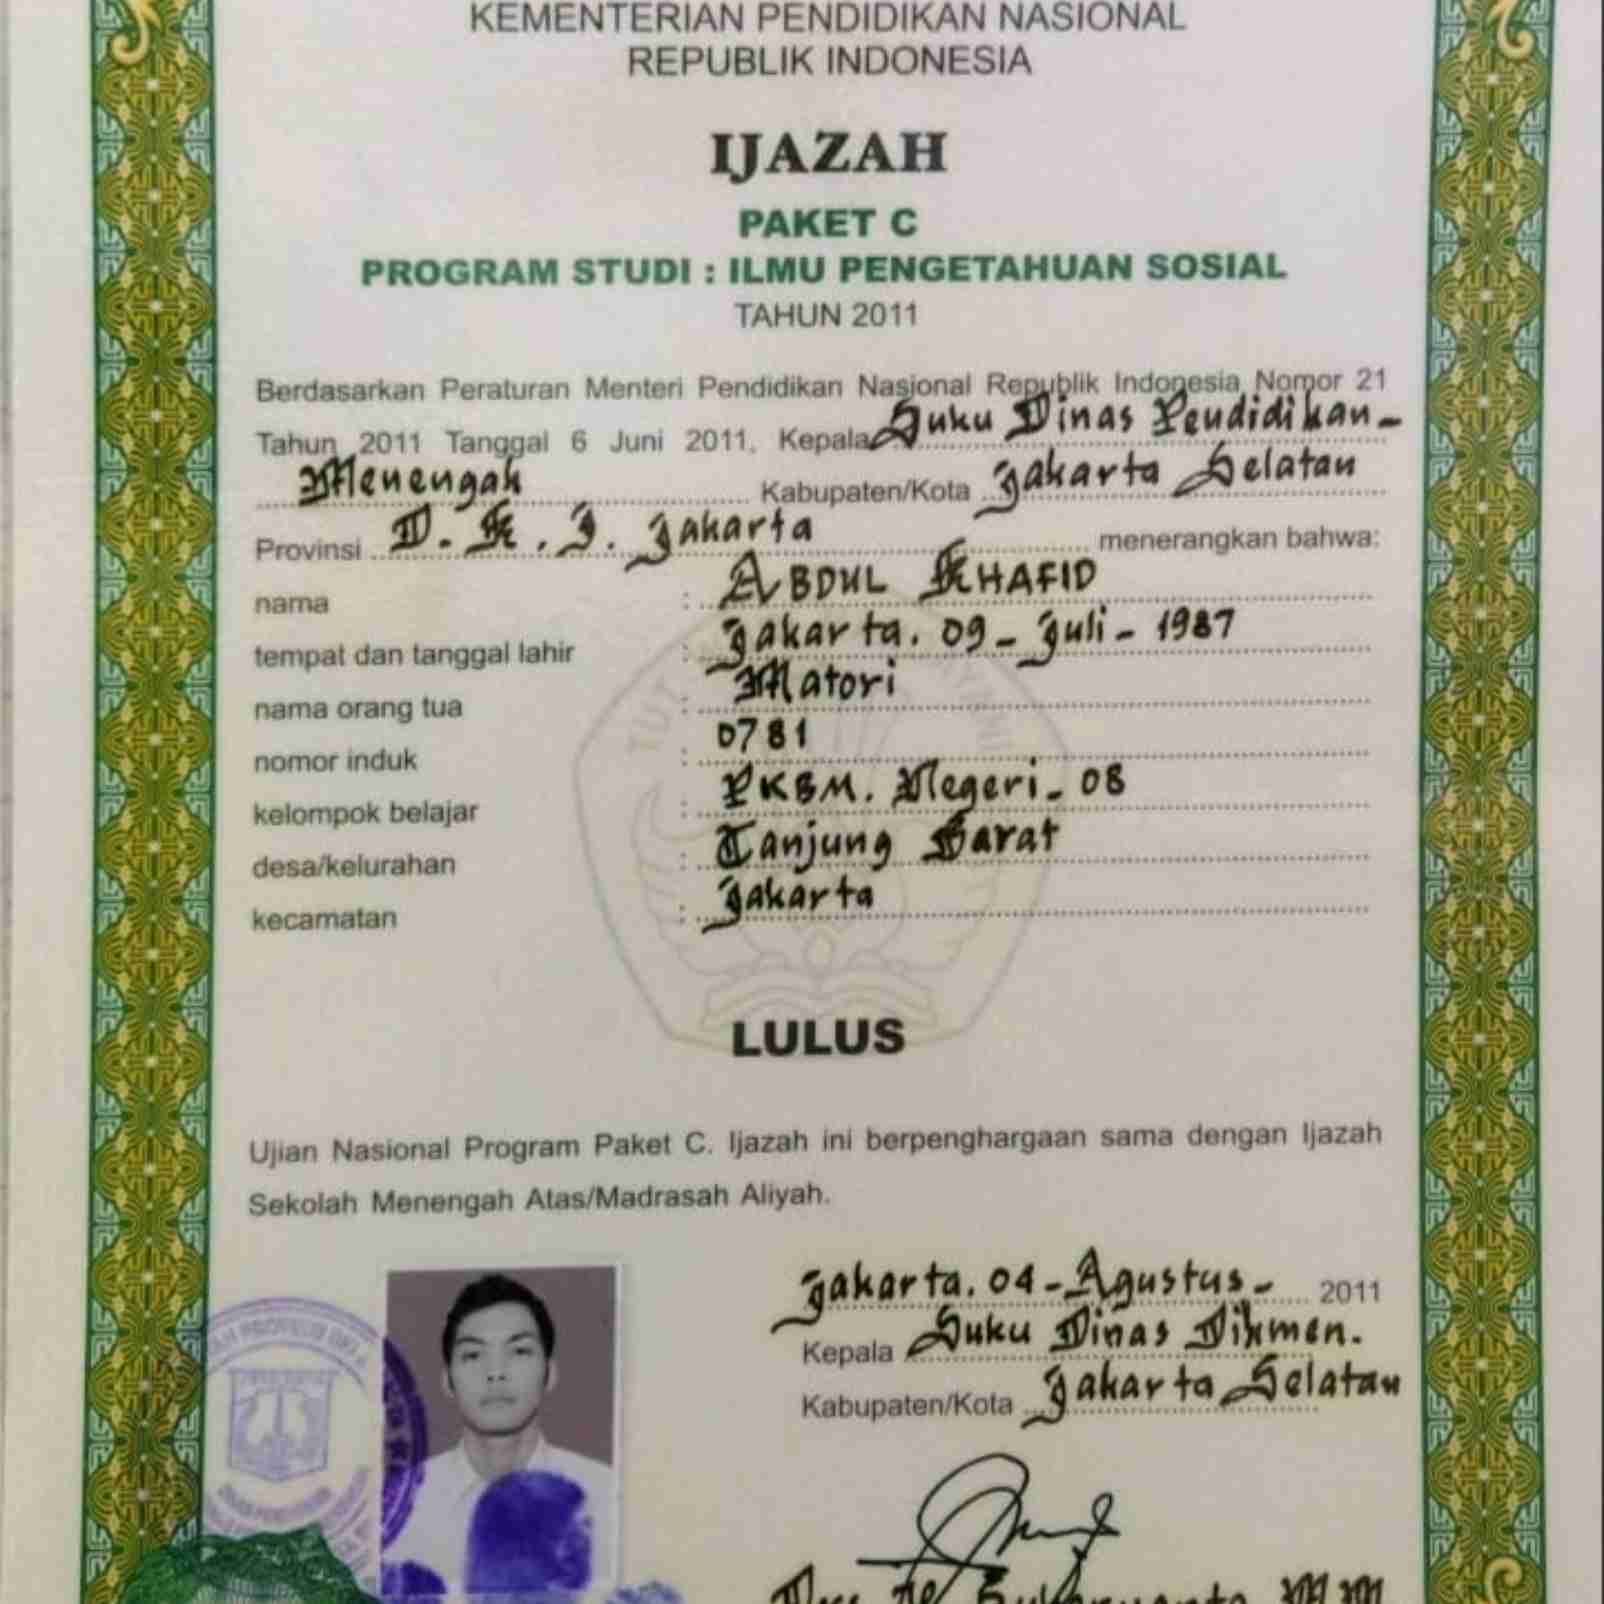 KEMENTERIAN PENDIDIKAN NASIONAL
REPUBLIK INDONESIA
IJAZAH
PAKET C
PROGRAM STUDI : ILMU PENGETAHUAN SOSIAL
TAHUN 2011
Berdasarkan Peraturan Menteri Pendidikan Nasional Republik Indonesia Nomor 21
Tahun 2011 Tanggal 6 Juni 2011, Kepala Suku Dinas Pendidikan-
Menengah Kabupaten/Kota Jakarta Selatan
Provinsi D. K. I. Jakarta menerangkan bahwa:
nama : ABDUL KHAFID
tempat dan tanggal lahir : Jakarta. 09 - Juli - 1987
nama orang tua : Matori
nomor induk : 0781
kelompok belajar : PKBM. Negeri - 08
desa/kelurahan : Tanjung Barat
kecamatan : Jakarta
TUT
LULUS
Ujian Nasional Program Paket C. Ijazah ini berpenghargaan sama dengan Ijazah
Sekolah Menengah Atas/Madrasah Aliyah.
Jakarta. 04 - Agustus - 2011
Kepala Suku Dinas Dikmen.
Kabupaten/Kota Jakarta Selatan